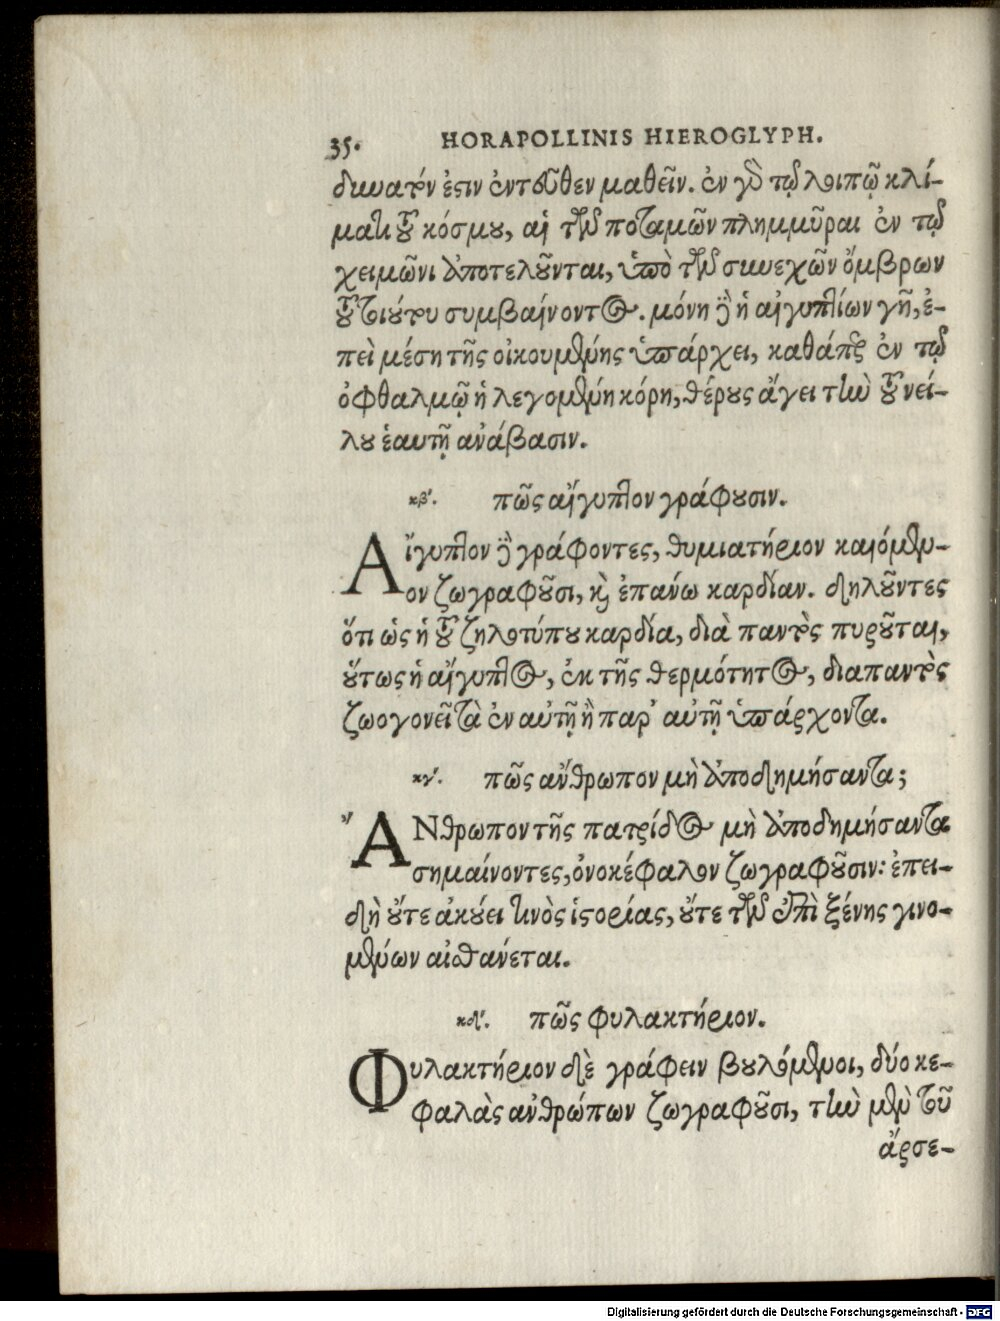 35. HORAPOLLINIS HIEROGLYPH.
δυνατόν ἐστιν ἐντεῦθεν μαθεῖν. ἐν γὸ τῷ λοιπῷ κλί-
ματι τοῦ κόσμου, αἱ τῶν ποταμῶν πλημμῦραι ἐν τῷ
χειμῶνι ἀποτελοῦνται, ὑπὸ τῶν συνεχῶν ὄμβρων
τοῦ τοιούτου συμβαίνοντος. μόνη δὲ ἡ αἰγυπτίων γῆ, ἐ-
πεὶ μέση τῆς οἰκουμένης ὑπάρχει, καθάπερ ἐν τῷ
ὀφθαλμῷ ἡ λεγομένη κόρη, θέρους ἄγει τὴν τοῦ νεί-
λου ἑαυτῇ ἀνάβασιν.
κβʹ. πῶς αἴγυπτον γράφουσιν.
Αἴγυπτον δὲ γράφοντες, θυμιατήριον καιόμεν-
ον ζωγραφοῦσι, καὶ ἐπάνω καρδίαν. δηλοῦντες
ὅτι ὡς ἡ τοῦ ζηλοτύπου καρδία, διὰ παντὸς πυροῦται,
οὕτως ἡ αἴγυπτος, ἐκ τῆς θερμότητος, διαπαντὸς
ζωογονεῖ τὰ ἐν αὐτῇ ἢ παρ᾽ αὐτῇ ὑπάρχοντα.
κγʹ. πῶς ἄνθρωπον μὴ ἀποδημήσαντα;
ἌΝθρωπον τῆς πατρίδος μὴ ἀποδημήσαντα
σημαίνοντες, ὀνοκέφαλον ζωγραφοῦσιν: ἐπει-
δὴ οὔτε ἀκούει τινὸς ἱστορίας, οὔτε τῶν ἐπὶ ξένης γινο-
μένων αἰσθάνεται.
κδʹ. πῶς φυλακτήριον.
Φυλακτήριον δὲ γράφειν βουλόμενοι, δύο κε-
φαλὰς ἀνθρώπων ζωγραφοῦσι, τὴν μὲν τοῦ
ἄρσε-
Digitalisierung gefördert durch die Deutsche Forschungsgemeinschaft - DFG